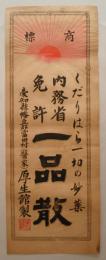 商標
くだりはら一切の妙薬
内務省
免許
一品散
愛知縣幡豆郡富田村
醫家厚生館製